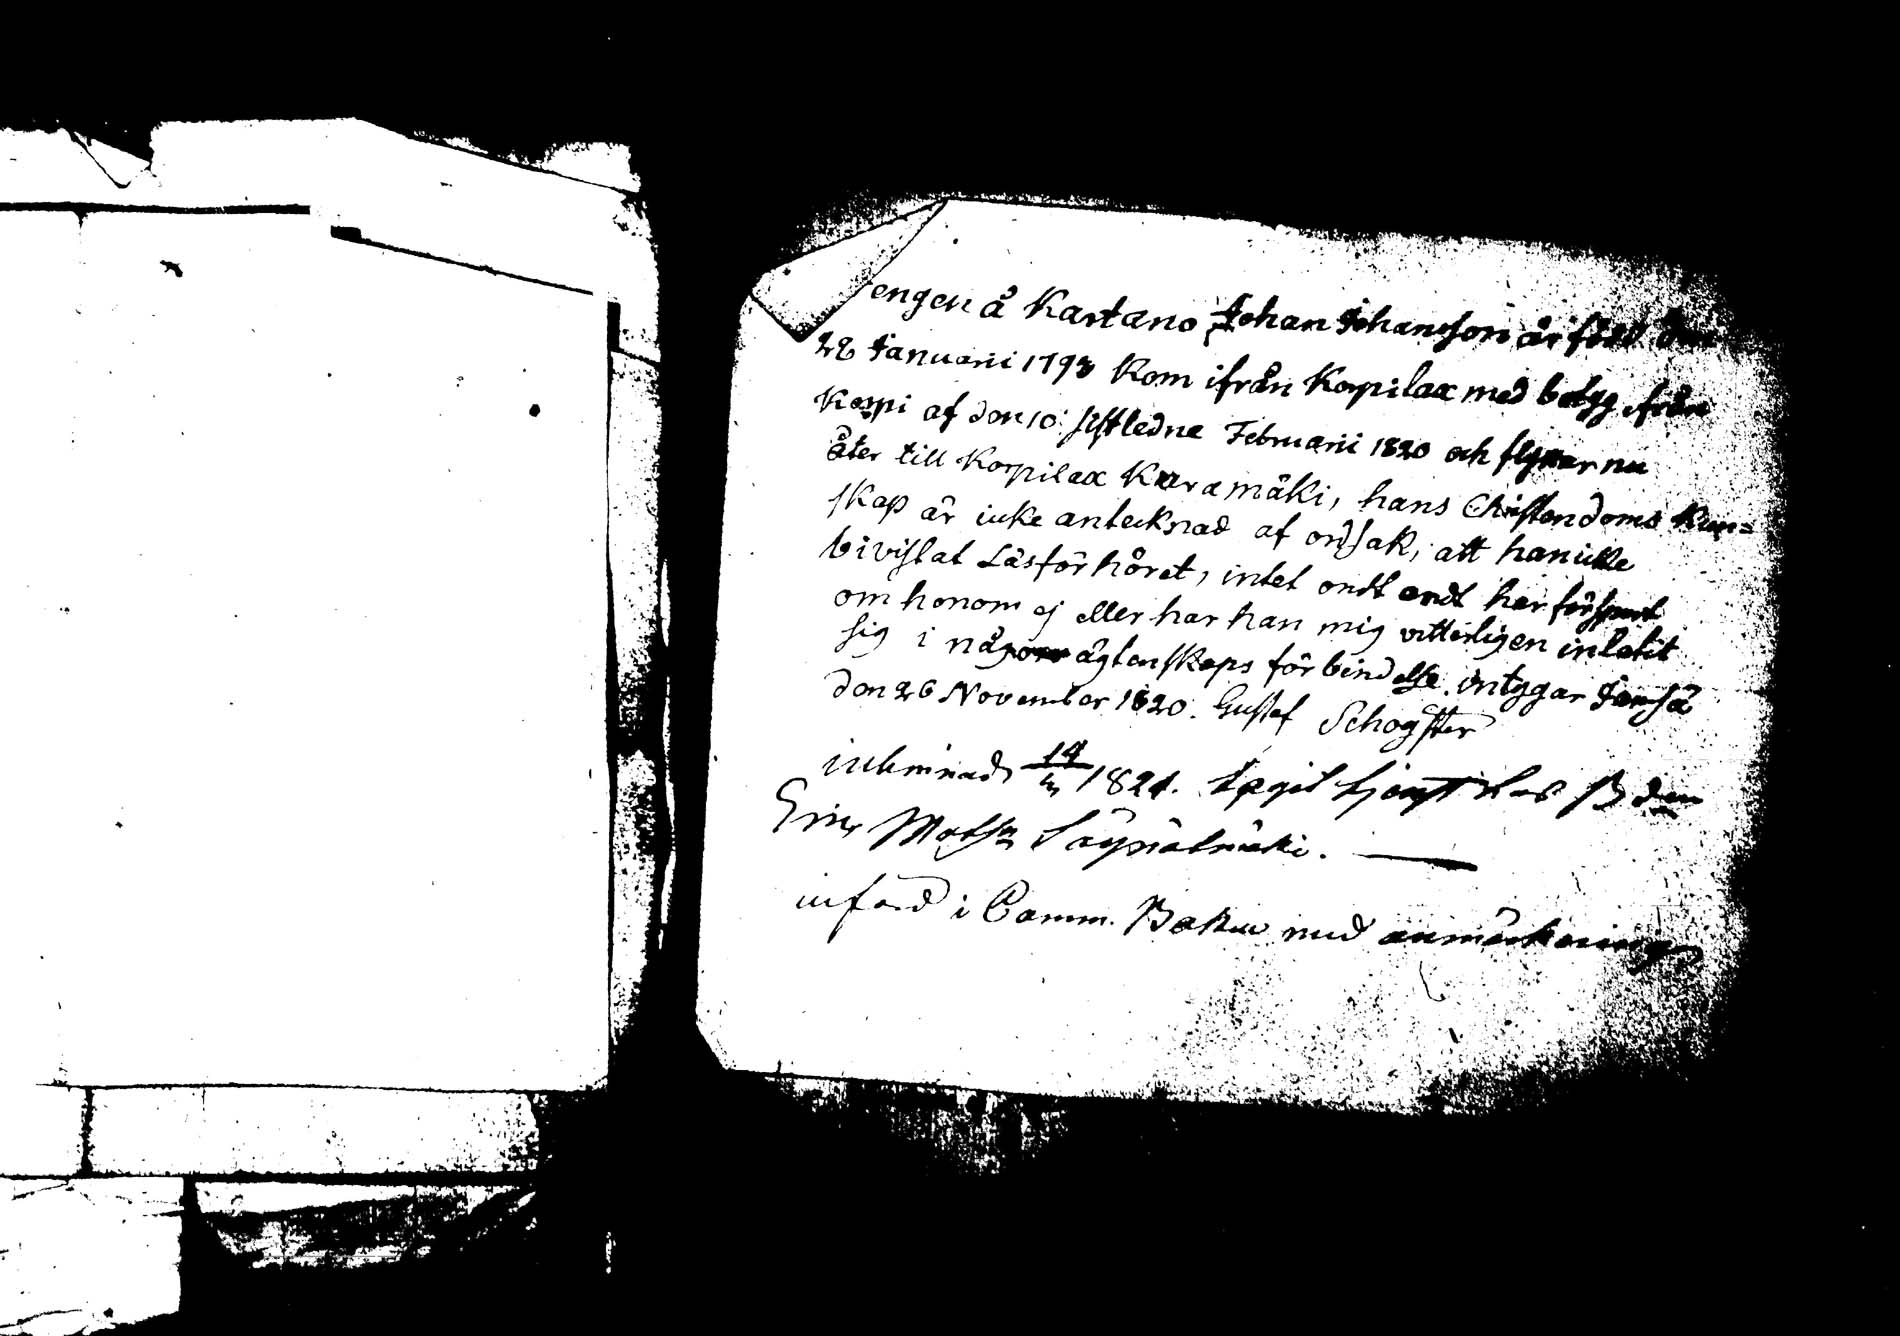 engen å Kartano Johan Johansson är född den
28 Januarii 1793 Kom ifrån Korpilax med betyg ifrån
Korpi af den 10: sistledne Februarii 1820 och flyttar nu
åter till Korpilax Kuramäki, hans Christendoms Kun=
skap är icke antecknad af ordsak, att han icke
bivistat Läsförhöret, intet ondt ondt har försport
om honom ej eller har han mig vitterligen inlåtit
sig i någon ägtenskaps förbindelse. intygar Jemsä
den 26 November 1820. Gustaf Schogster
inlemnad 14/4 1821. hos B den
Matss
införd i Comm. Boken med anmärkning